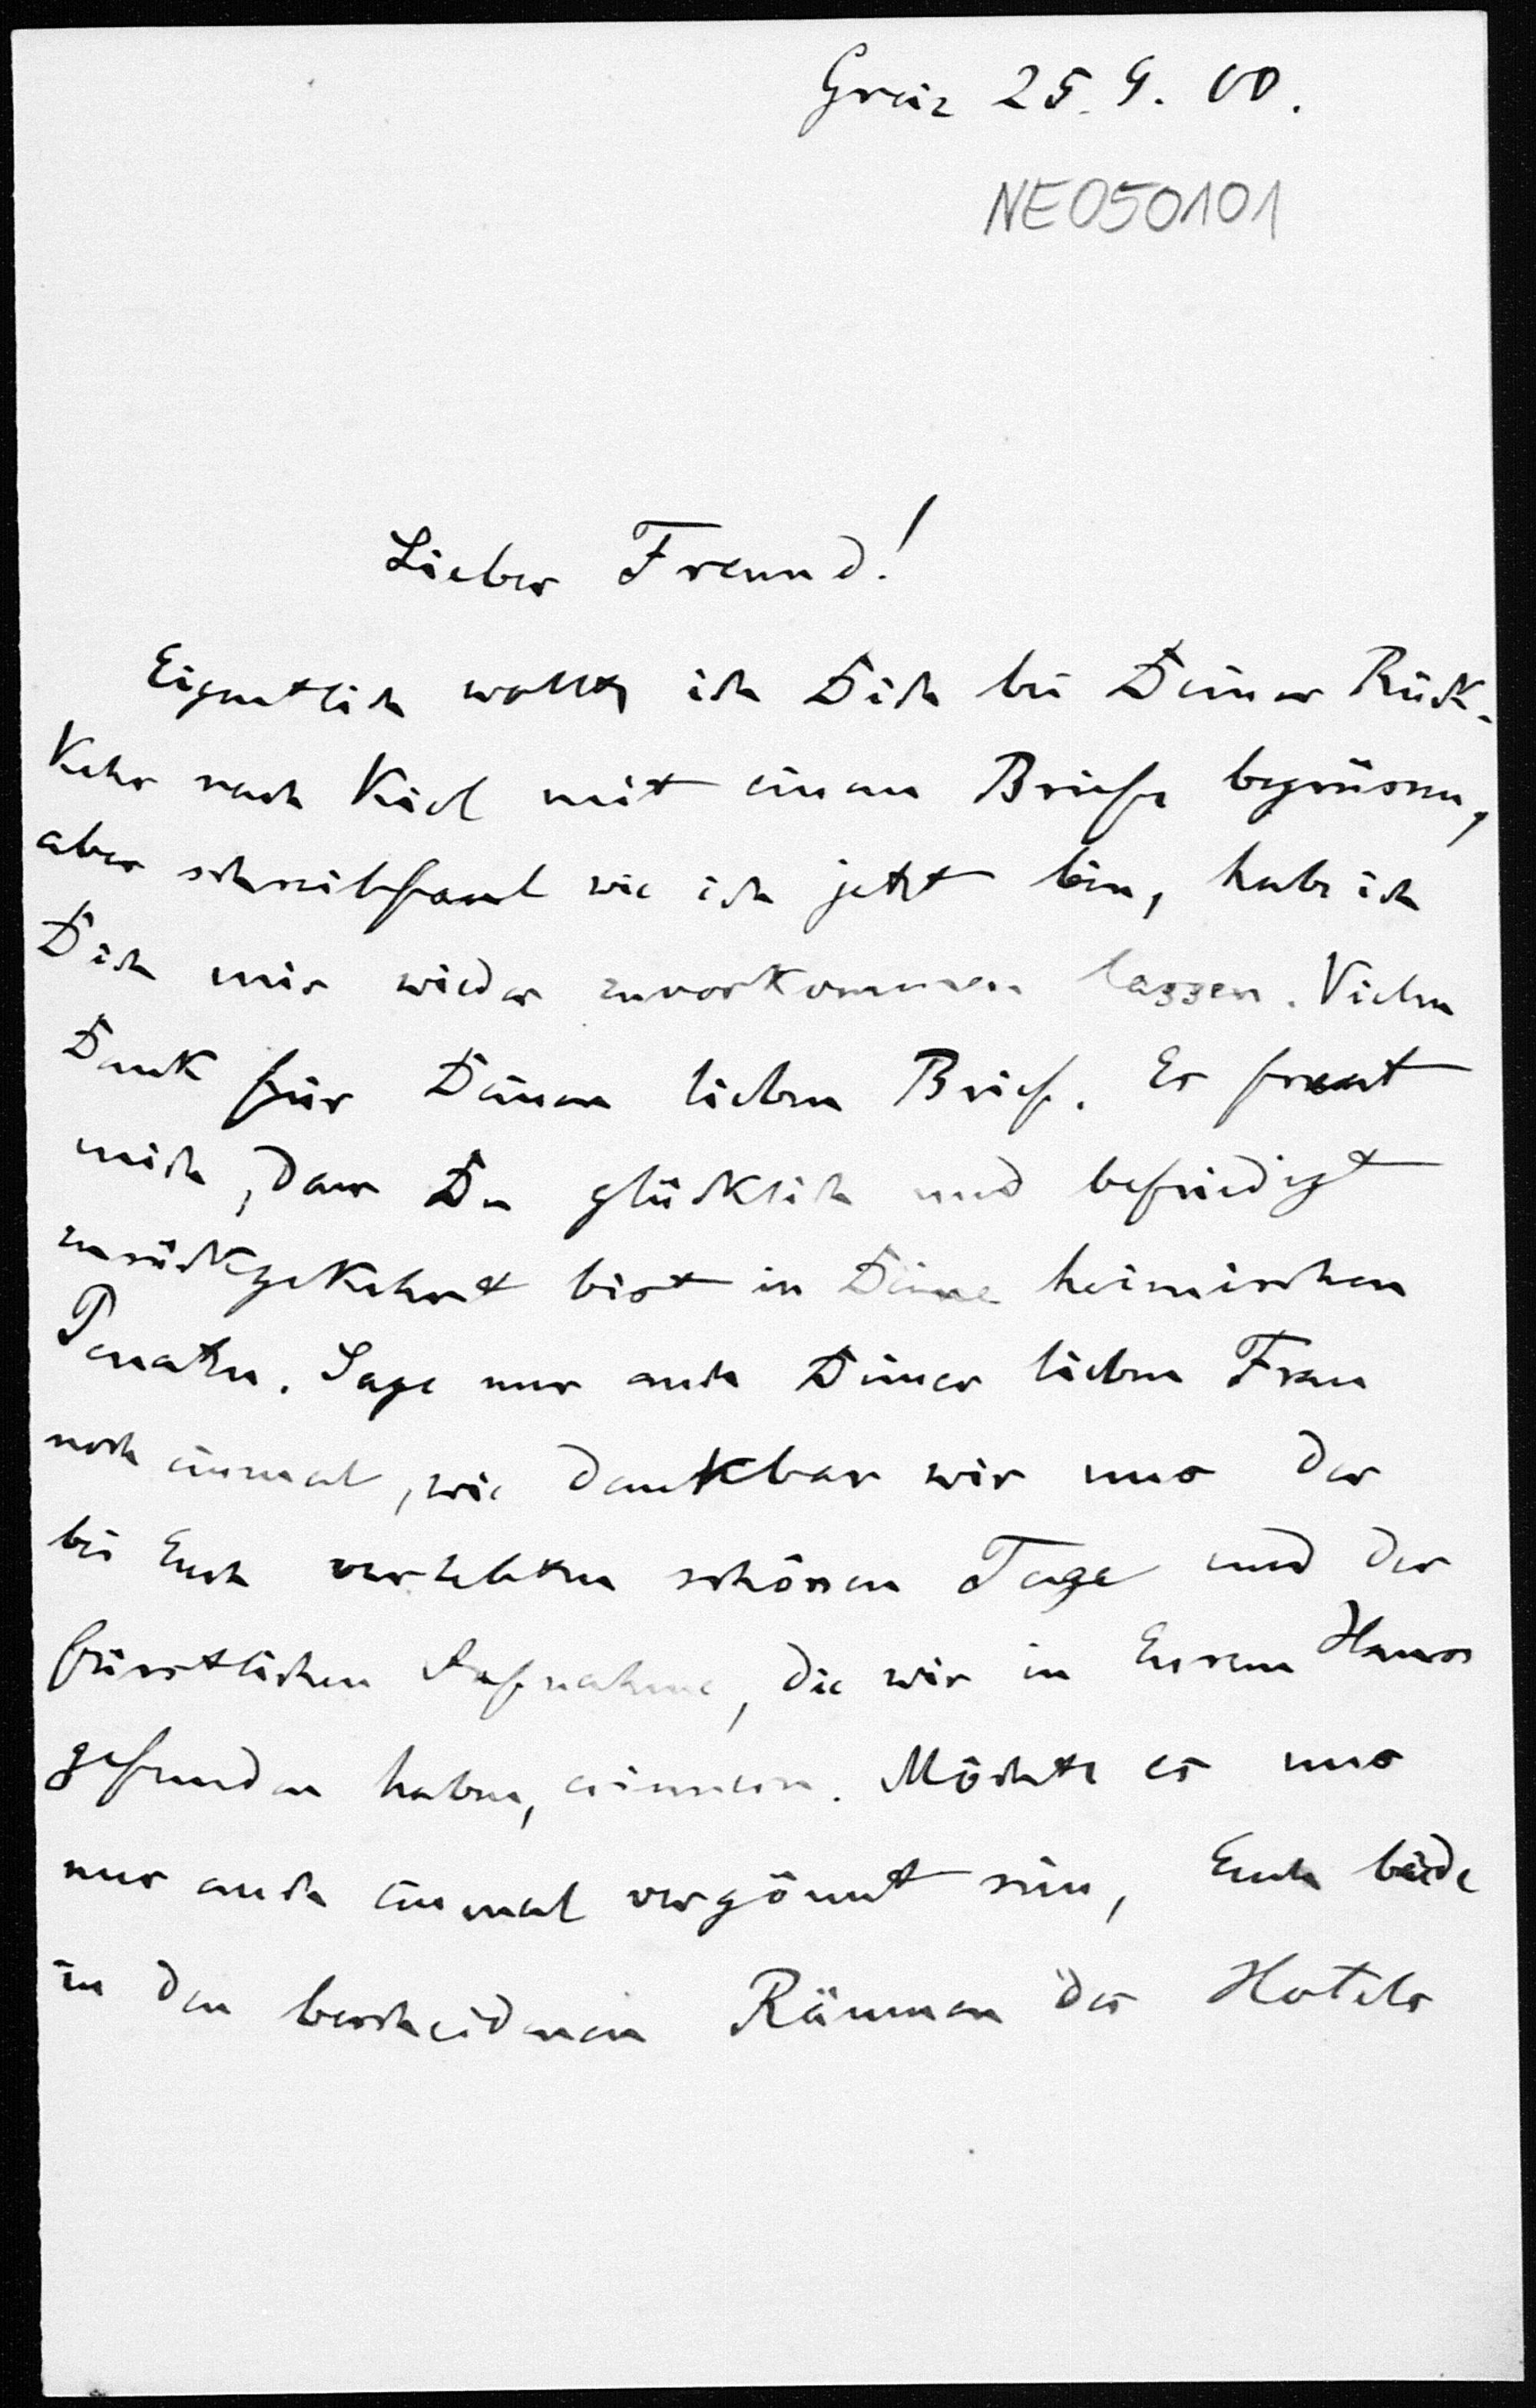 Graz 25. 9. 00.
NE050101
Lieber Freund!
Eigentlich wollte ich Dich bei Deiner Rück-
kehr nach Kiel mit einem Briefe begrüssen,
aber schreibfaul wie ich jetzt bin, habe ich
Dich mir wieder zuvorkommen lassen. Vielen
Dank für Deinen lieben Brief. Es freut
mich, dass Du glücklich und befriedigt
zurückgekehrt bist in Deine heimischen
Penaten. Sage nur auch Deiner lieben Frau
noch einmal, wie dankbar wir uns der
bei Euch verlebten schönen Tage und der
fürstlichen Aufnahme, die wir in Eurem Hause
gefunden haben, erinnern. Möchte es uns
nur auch einmal vergönnt sein, Euch beide
in den bescheidenen Räumen des Hotels